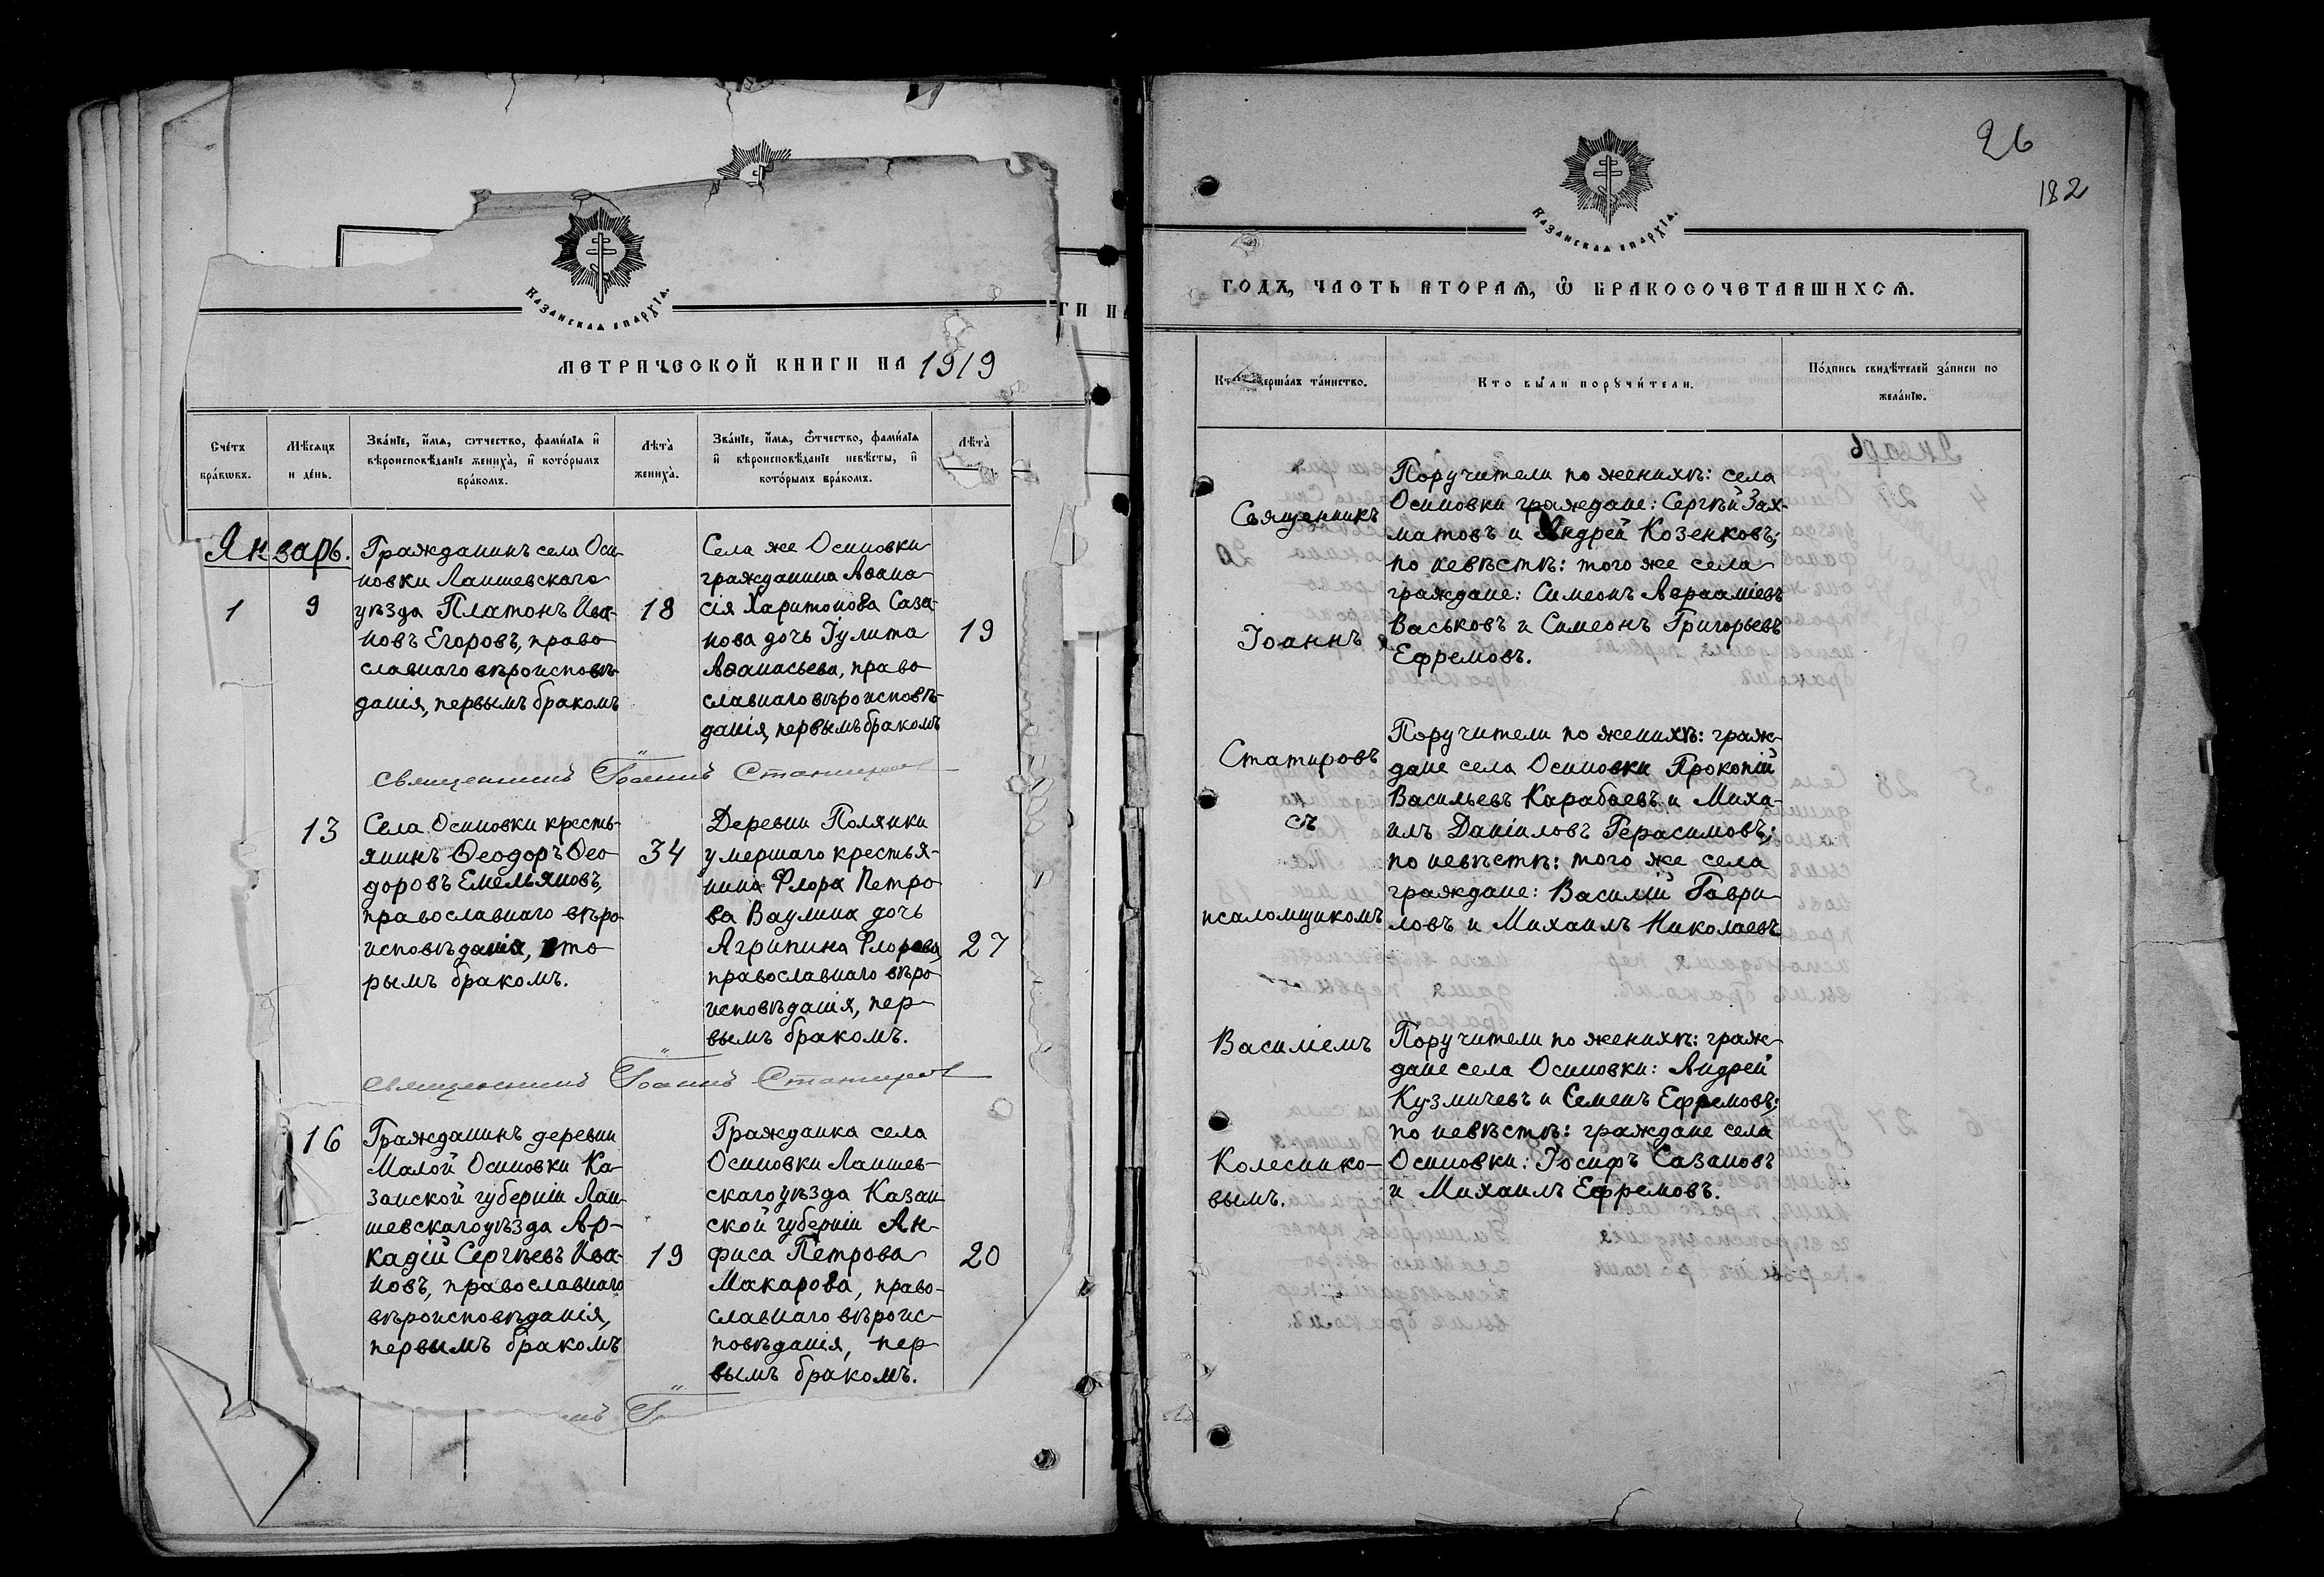 Казанская епархїа.
метрической книги на 1919
Сче́тъ
бра́кѡвъ.
Мѣ́сяцъ
и де́нь.
Зва́нїе, и҆́мя, ѻтчество, фами́лїя и҆
вѣроисповѣ́данїе жениха̀, и҆ кото́рымъ
бра́комъ.
Лѣта̀
жениха̀.
Зва́нїе, и҆́мя, ѻ҆́тчество, фами́лїя
и҆ вѣроисповѣ́данїе невѣ́сты, и҆
кото́рымъ бра́комъ.
Лѣта̀
Январь.
1
9
Гражданинъ села Оси-
новки Лаишевскаго
уѣзда Платонъ Ива-
новъ Егоровъ, право-
славнаго вѣроисповѣ-
данія, первымъ бракомъ
18
Села же Осиновки
гражданина Аѳана-
сія Харитонова Саза-
нова дочь Іулита
Аѳанасьева, право-
славнаго вѣроисповѣ-
данія, первымъ бракомъ
19
Священникъ Іоаннъ Статировъ
13
Села Осиновки кресть-
янинъ Ѳеодоръ Ѳео-
доровъ Емельяновъ,
православнаго вѣро-
исповѣданія, вто-
рымъ бракомъ.
34
Деревни Полянки
умершаго крестья-
нина Флора Петро-
ва Ваулина дочь
Агрипина Флорова,
православнаго вѣро-
исповѣданія, пер-
вымъ бракомъ.
27
Священникъ Іоаннъ Статировъ
16
Гражданинъ деревни
Малой Осиновки Ка-
занской губерніи Лаи-
шевскаго уѣзда Ар-
кадій Сергѣевъ Ива-
новъ, православнаго
вѣроисповѣданія,
первымъ бракомъ
19
Гражданка села
Осиновки Лаишев-
скаго уѣзда Казан-
ской губерніи Ан-
фиса Петрова
Макарова, право-
славнаго вѣроис-
повѣданія, пер-
вымъ бракомъ.
20
26
182
Казанская епархїа.
годъ, часть вторая, ѡ бракосочетавшихся.
верша́лъ та́инство.
Кто бы́ли порꙋчи́тели.
По́дпись свидѣ́телей за́писи по
жела́нїю.
Священникъ
Іоаннъ
Статировъ
съ
псаломщикомъ
Василіемъ
Колеснико-
вымъ.
Поручители по женихѣ: села
Осиновки граждане: Сергѣй Зах-
матовъ и Андрей Козенковъ;
по невѣстѣ: того же села
граждане: Симеонъ Авраамiевъ
Васьковъ и Симеонъ Григорьевъ
Ефремовъ.
Поручители по женихѣ: граж-
дане села Осиновки Прокопій
Васильевъ Карабаевъ и Миха-
илъ Даніиловъ Герасимовъ;
по невѣстѣ: того же села
граждане: Василій Гаври-
ловъ и Михаилъ Николаевъ
Поручители по женихѣ: граж-
дане села Осиновки: Андрей
Кузмичевъ и Семенъ Ефремовъ;
по невѣстѣ: граждане села
Осиновки: Іосифъ Сазановъ
и Михаилъ Ефремовъ.